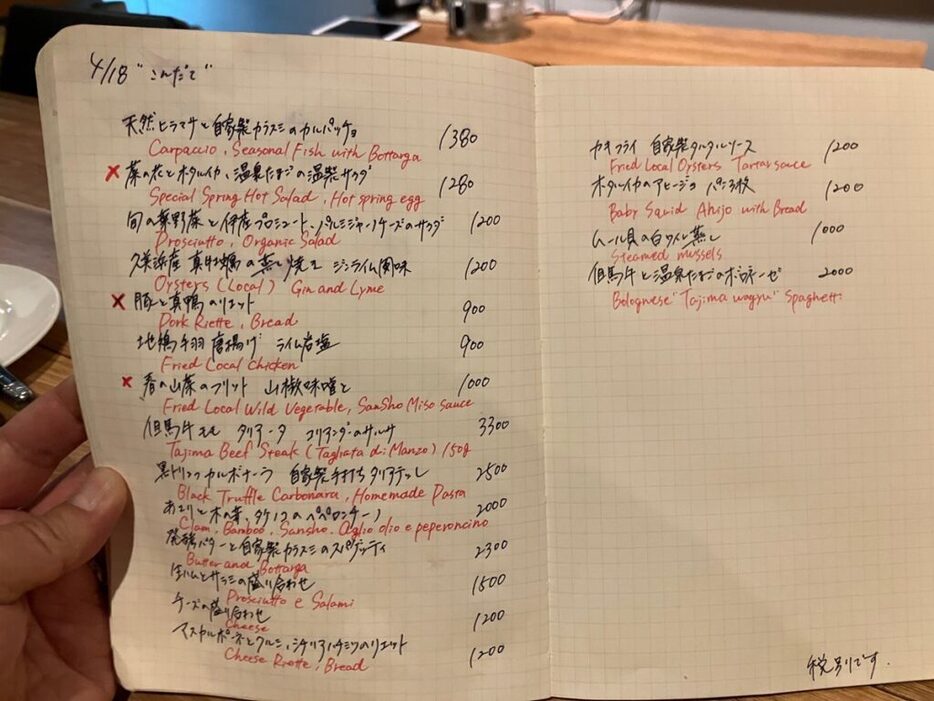 4/18 "こんだて"
天然ヒラマサと自家製カラスミのカルパッチョ 1380
Carpaccio, Seasonal Fish with Bottarga
× 菜の花とホタルイカ、温泉たまごの温製サラダ 1280
Special Spring Hot Salad, Hot spring egg
旬の葉野菜と伊産プロシュート、パルミジャーノチーズのサラダ 1200
Prosciutto, Organic Salad
久美浜産 真牡蠣の蒸し焼き ジンライム風味 1200
Oysters (Local) Gin and Lyme
× 豚と真鴨のリエット 900
Pork Riette, Bread
地鶏手羽 唐揚げ ライム岩塩 900
Fried Local Chicken
× 春の山菜のフリット 山椒味噌と 1000
Fried Local Wild Vegerable, Sansho Miso sauce
但馬牛モモ タリアータ コリアンダーのサルサ 3300
Tajima Beef Steak (Tagliata di Manzo) 150g
黒トリュフカルボナーラ 自家製手打ちタリアテッレ 2500
Black Truffle Carbonara, Homemade Pasta
あさりと木の芽、タケノコのペペロンチーノ 2000
Clam, Bamboo, Sansho. Aglio olio e peperoncino
発酵バターと自家製カラスミのスパゲッティ 2300
Butter and Bottarga
生ハムとサラミの盛り合わせ 1500
Prosciutto e Salami
チーズの盛り合わせ 1200
Cheese
マスカルポーネとクルミ、シチリアハチミツのリエット 1200
Cheese Riette, Bread
カキフライ 自家製タルタルソース 1200
Fried Local Oysters Tartar sauce
ホタルイカのアヒージョ パン3枚 1200
Baby Squid Ahijo with Bread
ムール貝の白ワイン蒸し 1000
Steamed mussels
但馬牛と温泉たまごのボロネーゼ 2000
Bolognese "Tajima wagyu" Spaghetti
税別です.